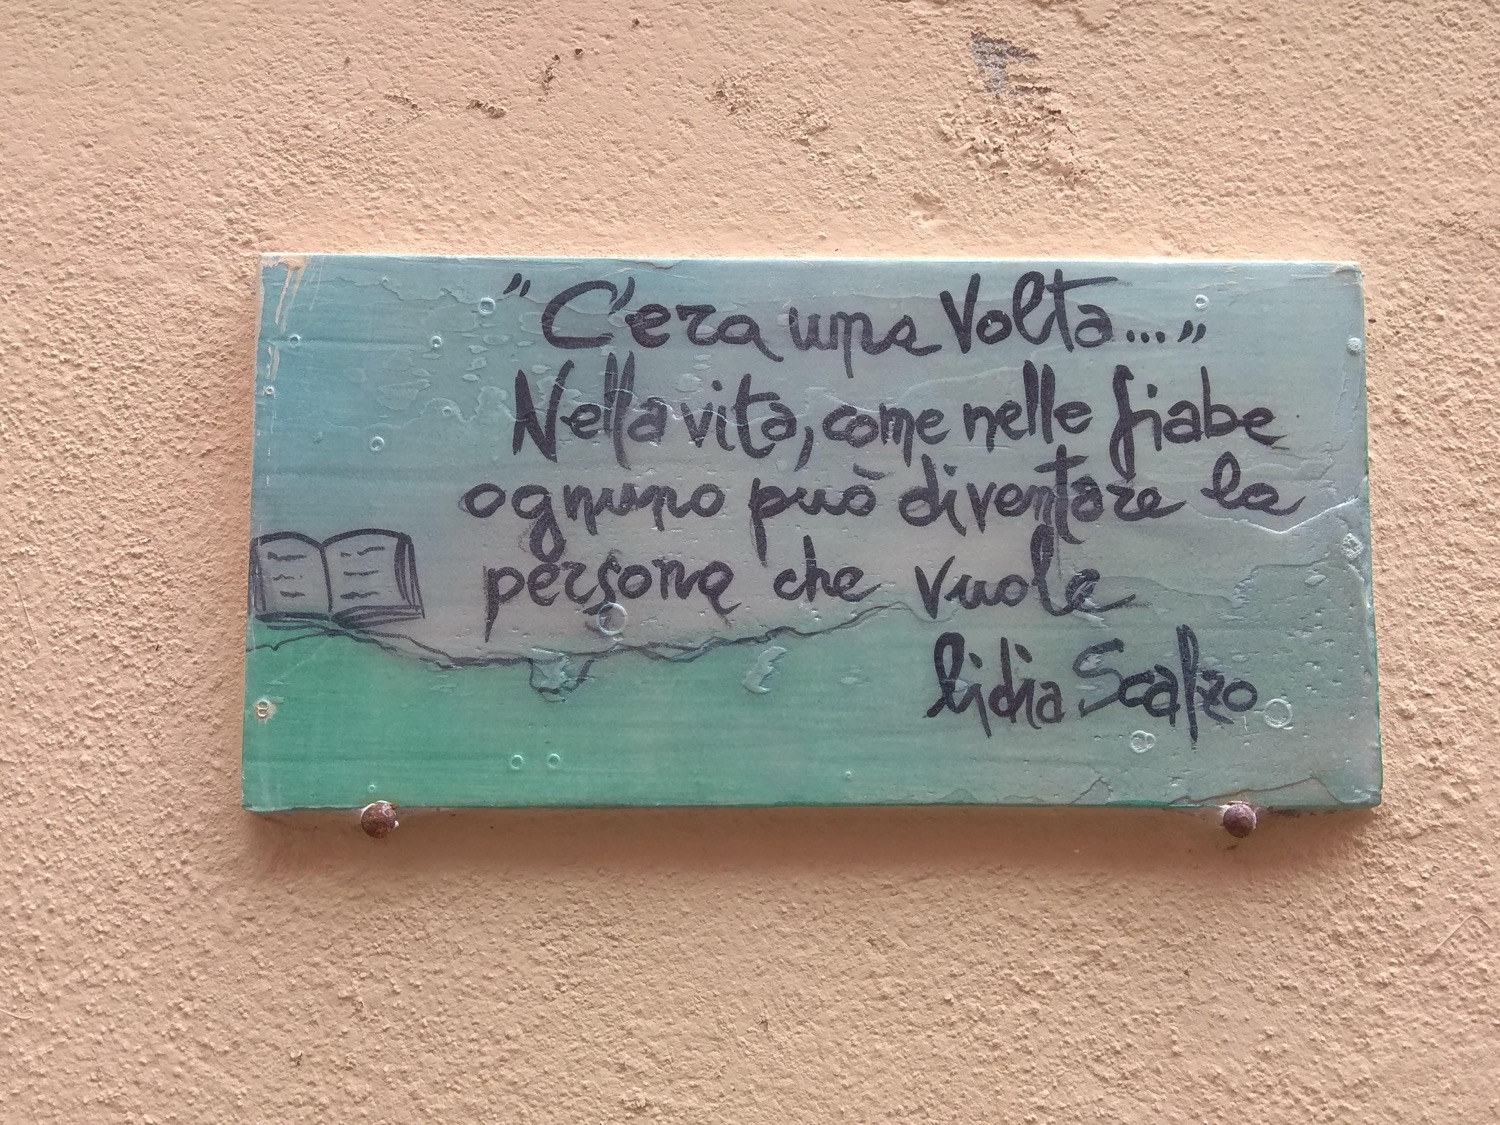 "C'era una Volta..."
Nella vita, come nelle fiabe
ognuno può diventare la
persona che vuole
lidia Scalzo